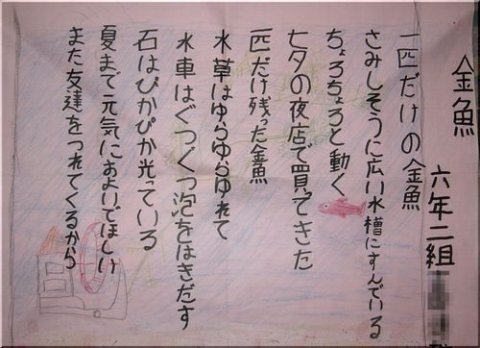 金魚
六年二組
一匹だけの金魚
さみしそうに広い水槽にすんでいる
ちょろちょろと動く
七夕の夜店で買ってきた
一匹だけ残った金魚
水草はゆらゆらゆれて
水車はぐつぐつ泡をはきだす
石はぴかぴか光っている
夏まで元気におよいでほしい
また友達をつれてくるから